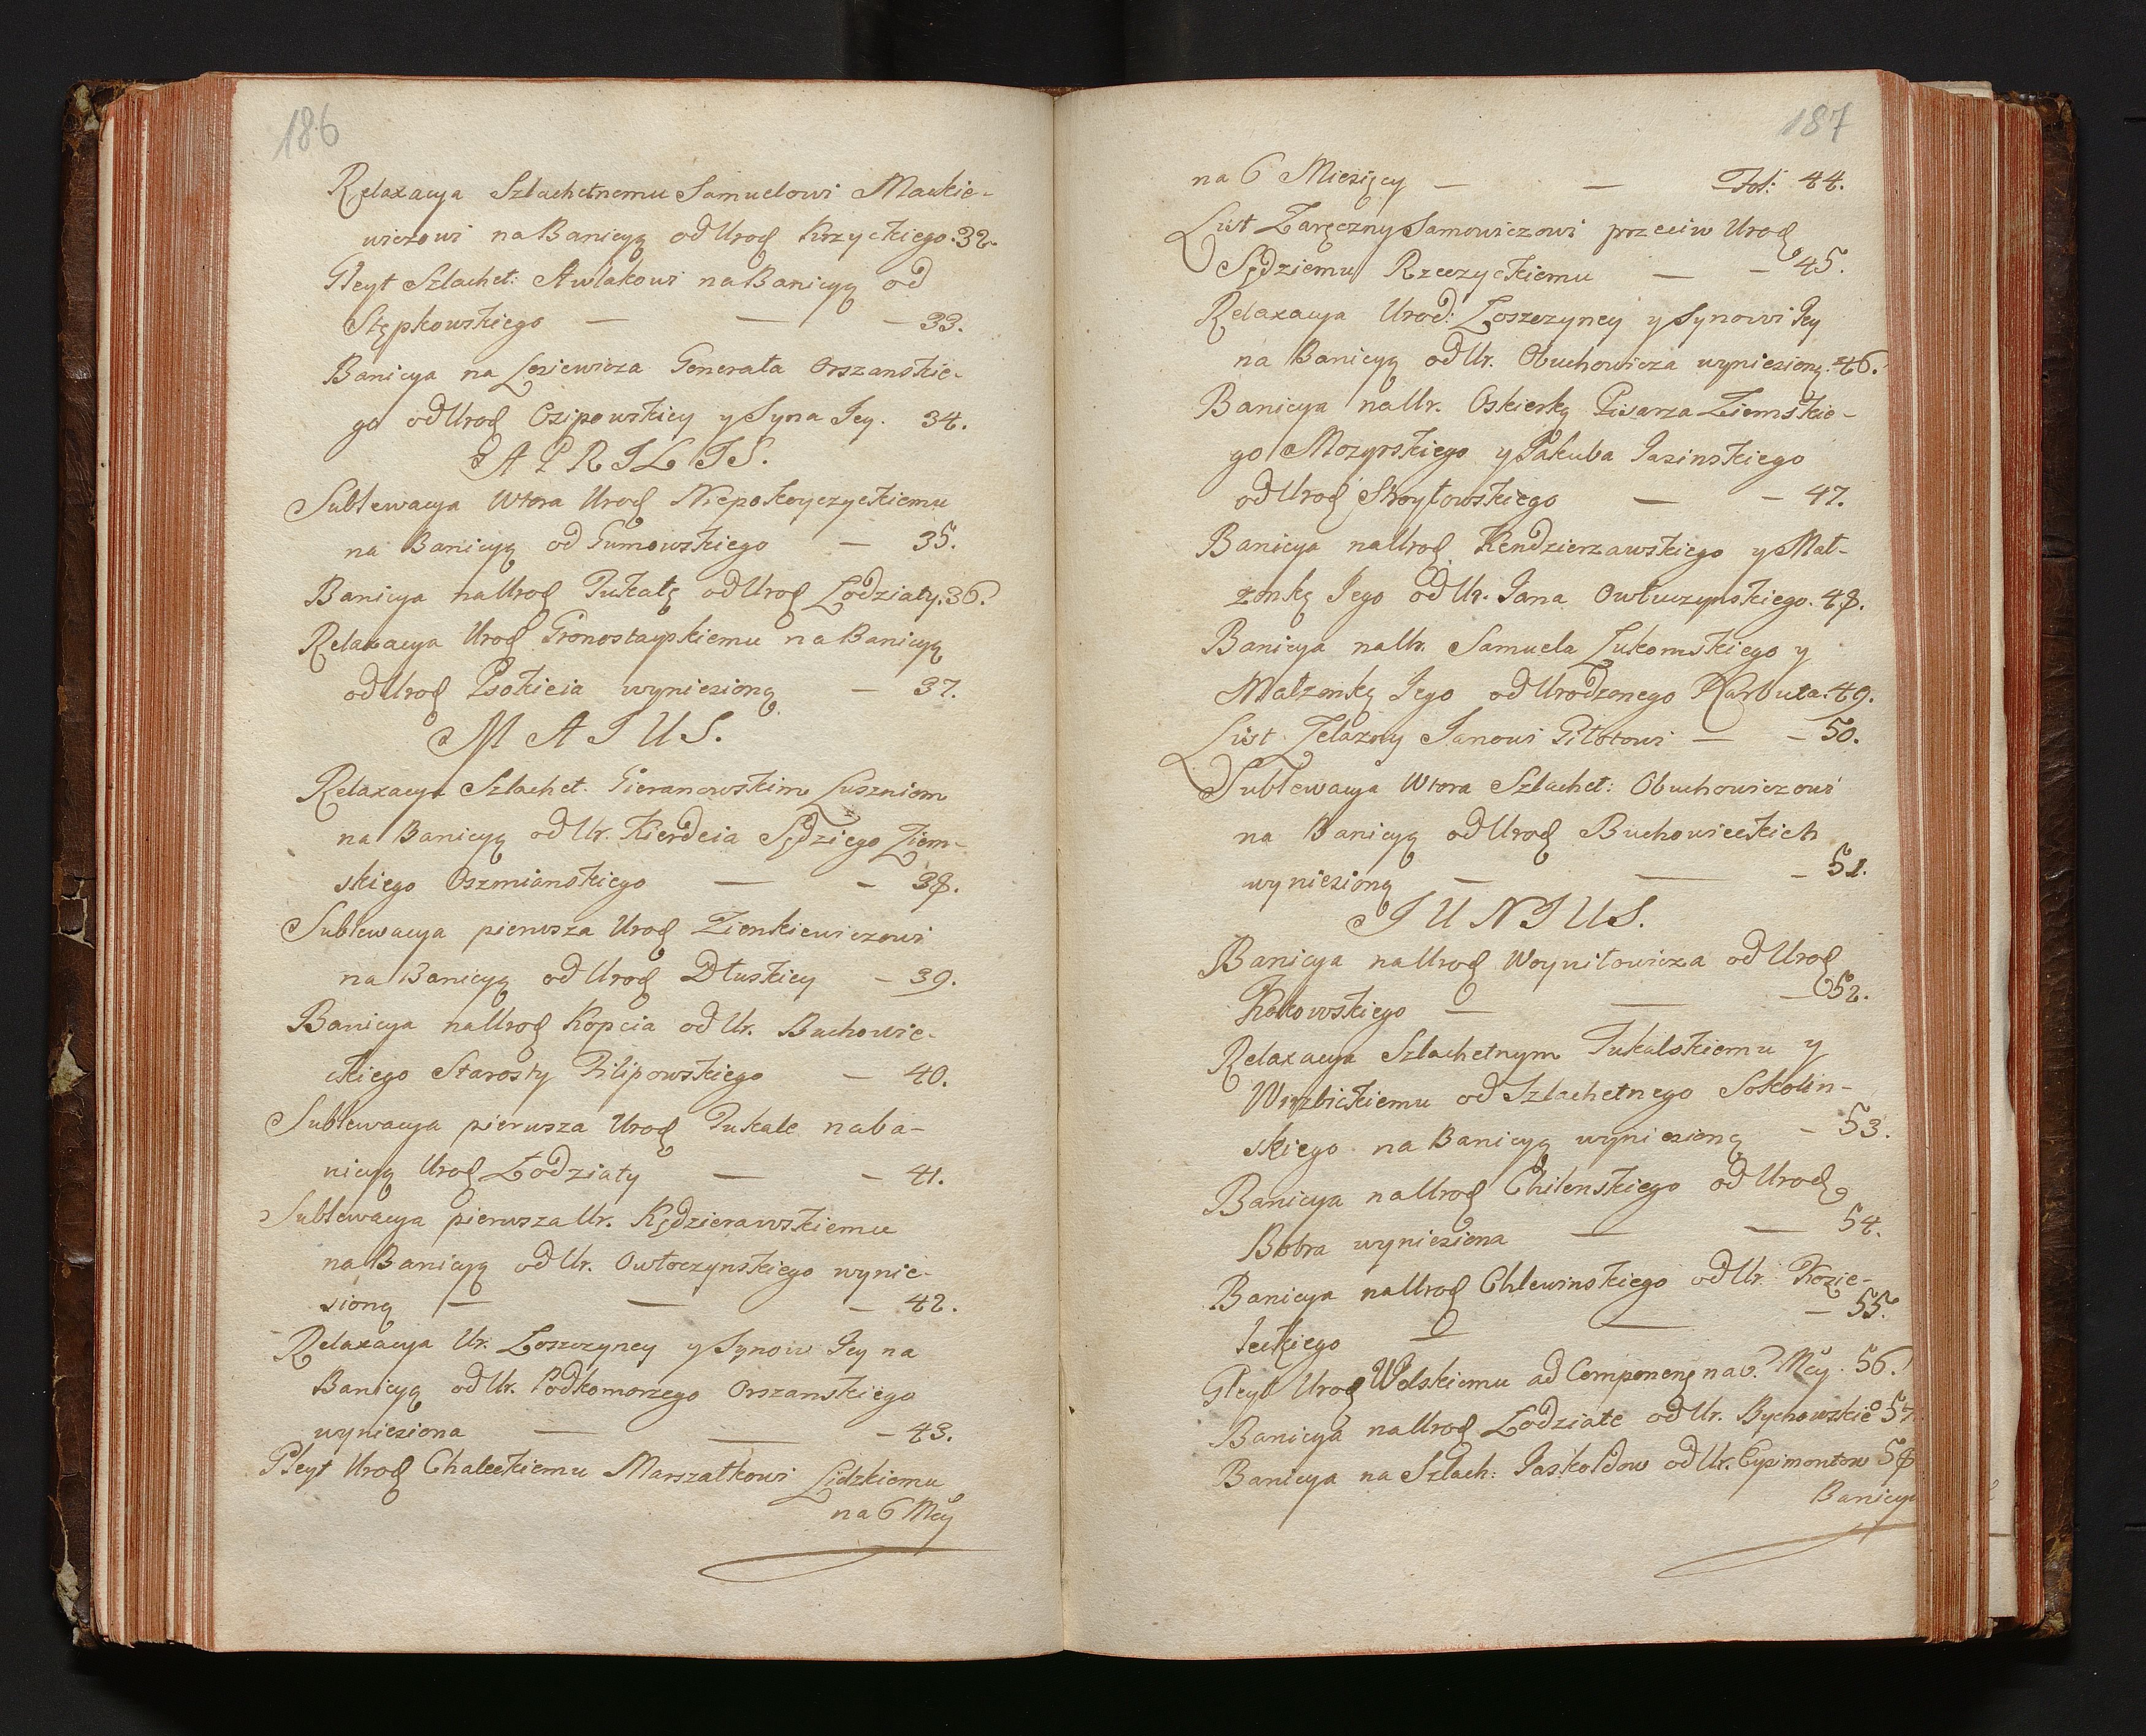 186
Relaxacya Szlachetnemu Samuelowi Mackie-
wiczowi na Banicyą od Urod Krzyckiego. 32.
Gleyt Szlachet: Awlakowi na Banicyą od
Stępkowskiego — — — 33.
Banicya na Lesiewicza Generała Orszanskie-
go od Urod Osipowskiey y Syna Jey. 34.
APRILIS.
Sublewacya Wtora Urod Niepokoyczyckiemu
na Banicyą od Gumowskiego — 35.
Banicya na Urod Pukałę od Urod Łodziaty. 36.
Relaxacya Urod Gronostayskiemu na Banicyą
od Urod Psokicia wyniesioną — 37.
MAIUS.
Relaxacya Szlachet. Gieranowskim Luszniom
na Banicyą od Ur. Kierdeia Sędziego Ziem-
skiego Oszmianskiego — — 38.
Sublewacya pierwsza Urod Zienkiewiczowi
na Banicyą od Urod Dłuskiey — 39.
Banicya na Urod Kopcia od Ur. Buchowie-
ckiego Starosty Filipowskiego — 40.
Sublewacya pierwsza Urod Pukale na ba-
nicyą Urod Łodziaty — — 41.
Sublewacya pierwsza Ur. Kędzierawskiemu
na Banicyą od Ur. Owłoczynskiego wynie-
sioną — — — 42.
Relaxacya Ur. Łoszczyney y Synow Jey na
Banicyą od Ur. Podkomorzego Orszanskiego
wyniesiona — — — 43.
Gleyt Urod Chaleckiemu Marszałkowi Lidzkiemu
na 6 Mcy
187
na 6 Miesięcy — — Fol: 44.
List Zaręczny Samowiczowi przeciw Urod
Sędziemu Rzeczyckiemu — — 45.
Relaxacya Urod: Łoszczyney y Synowi Jey
na Banicyą od Ur. Obuchowicza wyniesioną. 46.
Banicya na Ur. Oskierkę Pisarza Ziemskie-
go Mozyrskiego y Jakuba Jasinskiego
od Urod Stroyłowskiego — — 47.
Banicya na Urod Kendzierzawskiego y Mał-
zonkę Jego od Ur. Jana Owłuczynskiego. 48.
Banicya na Ur. Samuela Łukomskiego y
Małzonkę Jego od Urodzonego Karbuta. 49.
List Zelazny Janowi Piłotowi — — 50.
Sublewacya Wtora Szlachet: Obuchowiczowi
na Banicyą od Urod Buchowieckich
wyniesioną — — — 51.
IUNIUS.
Banicya na Urod Woyniłowicza od Urod
Rokowskiego — — — 52.
Relaxacya Szlachetnym Tukalskiemu y
Wirzbickiemu od Szlachetnego Sokolin-
skiego na Banicyą wyniesioną — 53.
Banicya na Urod Chilenskiego od Urod
Bobra wyniesiona — — 54.
Banicya na Urod Chlewinskiego od Ur. Kozie-
łeckiego — — — 55.
Gleyt Urod Wolskiemu ad Componend na 6. Mcy. 56.
Banicya na Urod Łodziate od Ur. Bychowskie 57
Banicya na Szlach: Jaskołdow od Ur. Cypimontow 58
Banicya